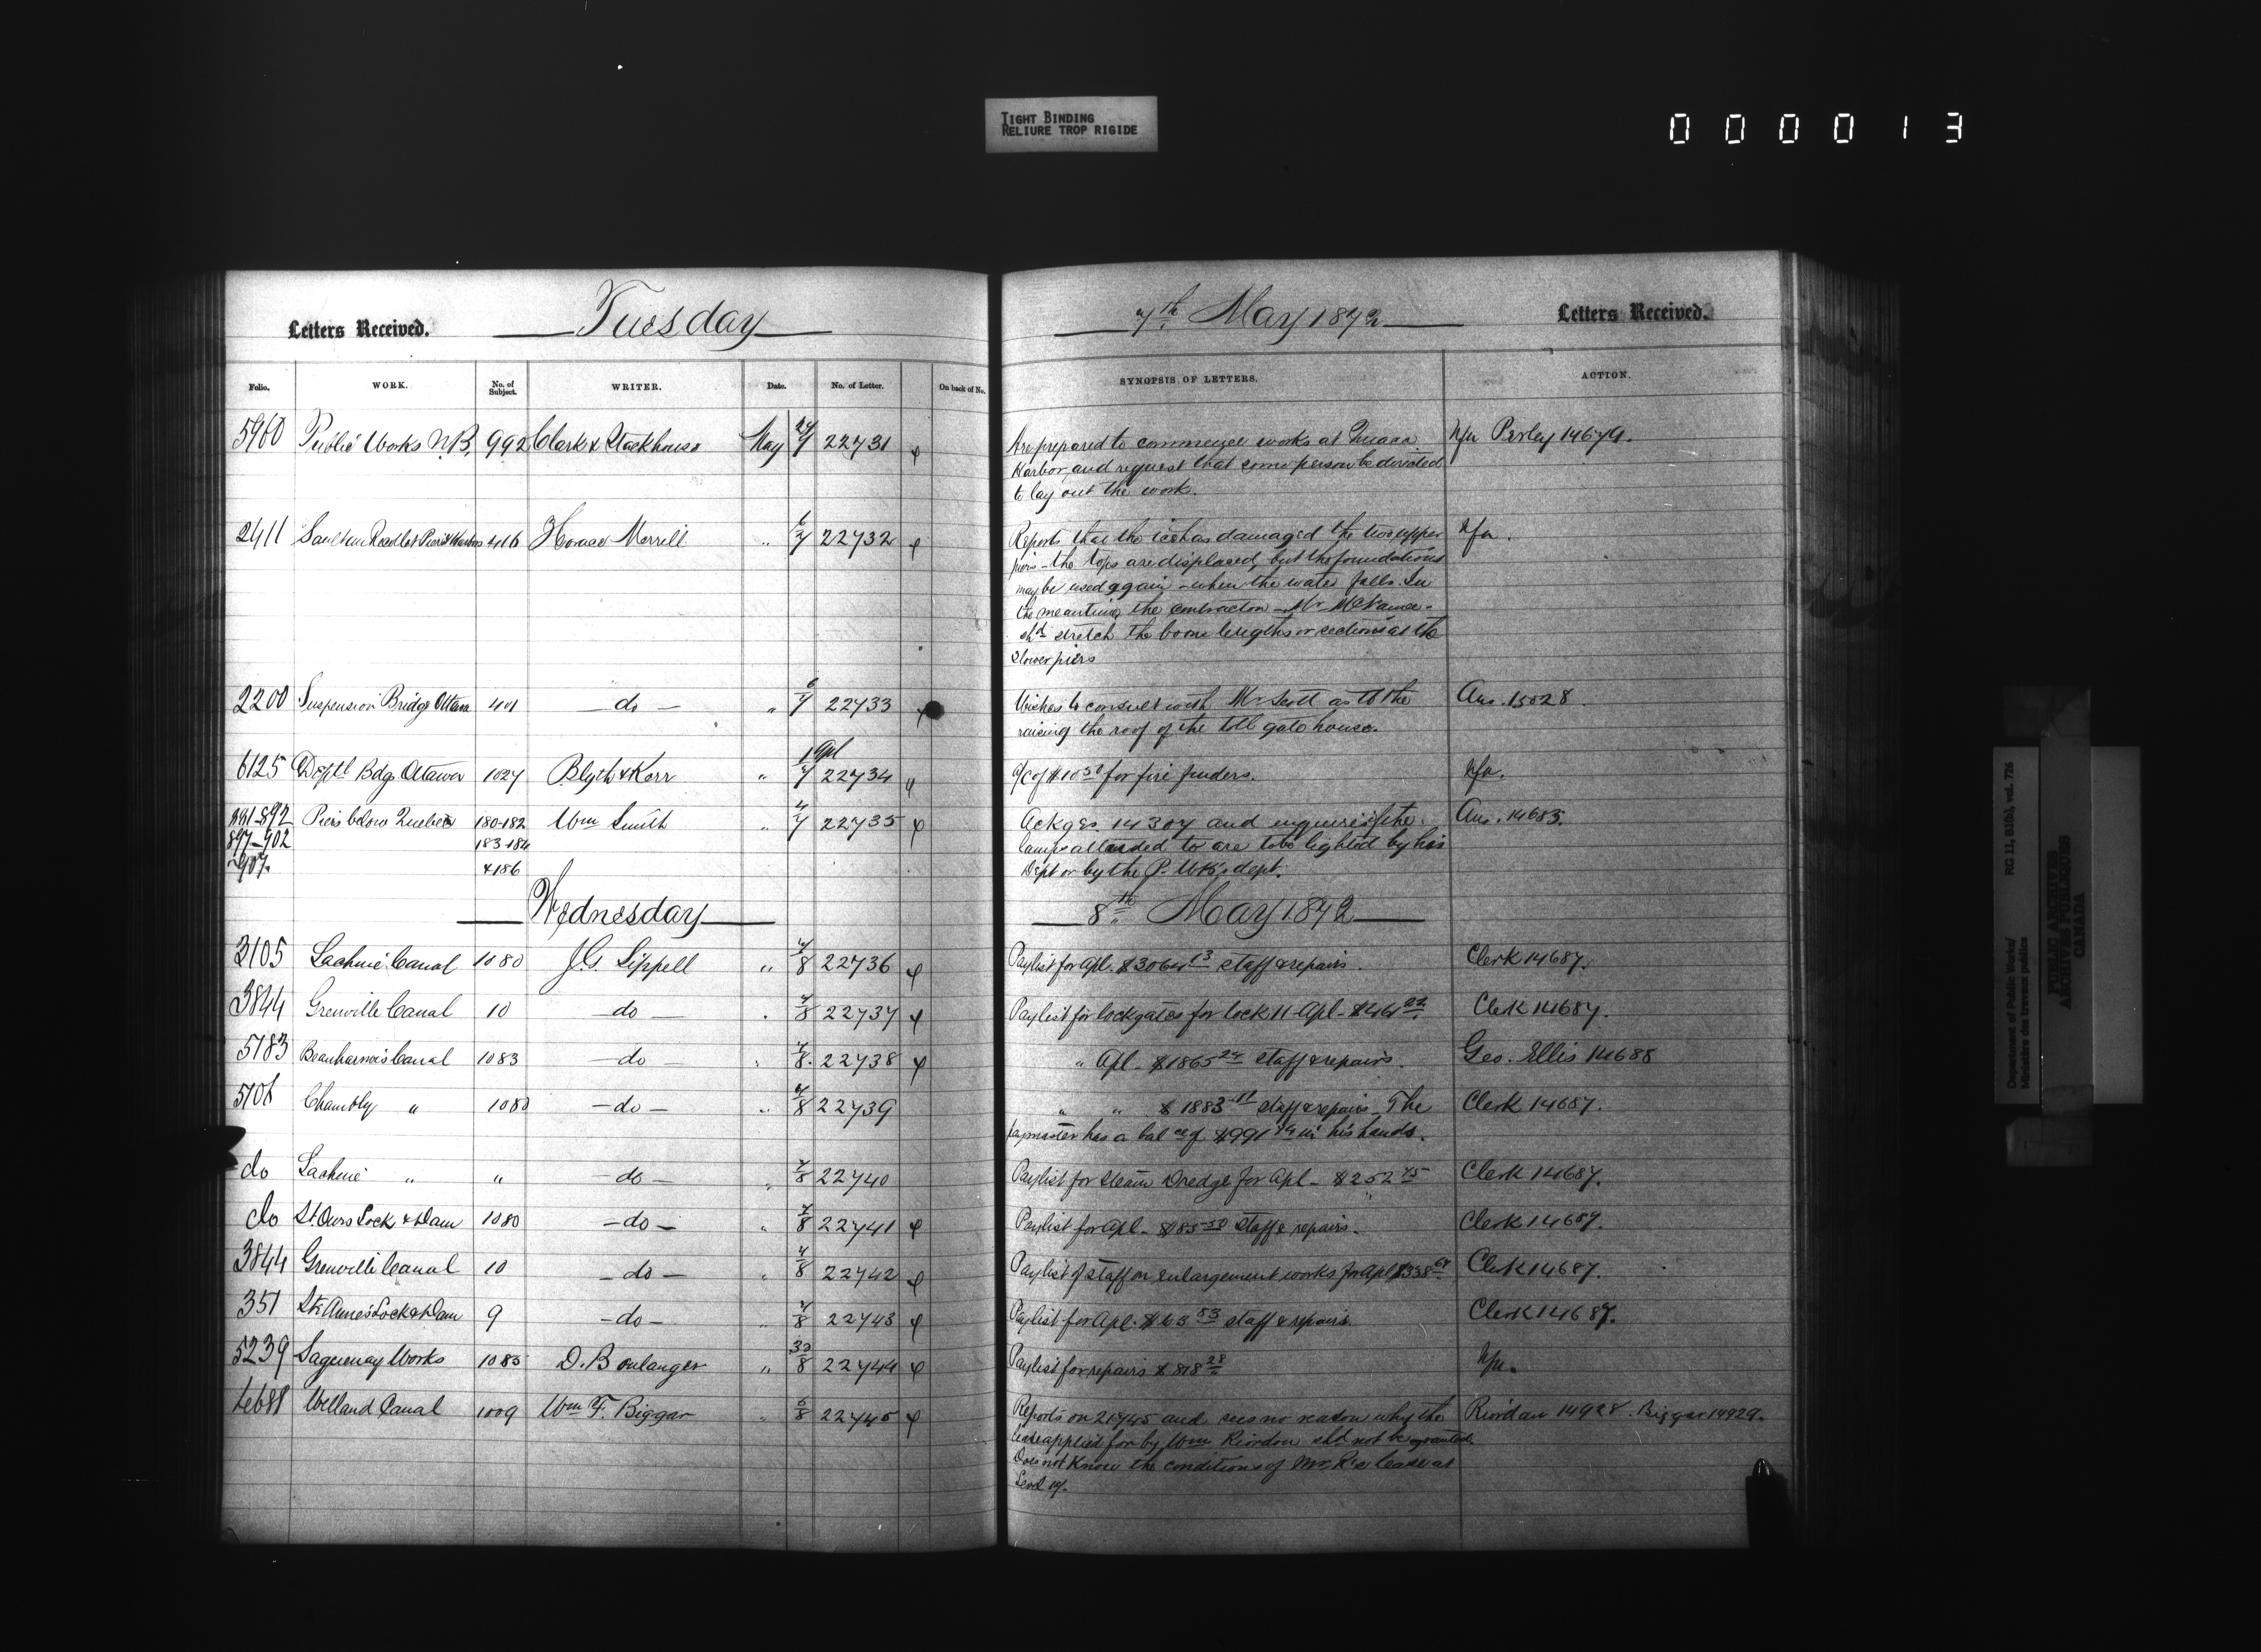 TIGHT BINDING
RELIURE TROP RIGIDE
0 0 0 0 1 3
Letters Received. Tuesday 7th May 1872 Letters Received.
Folio. WORK. No. of Subject. WRITER. Date. No. of Letter. On back of No. SYNOPSIS OF LETTERS. ACTION.
5960 Public Works N.B. 992 Clark & Stackhouse May 7 22731 Are prepared to commence works at Quaco Nfa Perley 14679.
Harbor, and request that some person be
to lay out the work.
2411 416 Horace Merrill " 6/7 22732 Reports that the ice has damaged the two upper Nfa.
piers - the tops are displaced, but the foundations
may be used again - when the water falls. In
the meantime the contractor - Mr McNamee -
shd stretch the boom lengths or sections at the
2 lower piers
2200 Suspension Bridge Ottawa 401 - do - " 6/7 22733 Wishes to consult with Mr Scott as to the Ans. 15028.
raising the roof of the toll gate house.
6125 Deptl Bdgs Ottawa 1027 Blyth & Kerr " 1 Apl/7 22734 " a/c of $10 50 for fire fenders. Nfa.
891-892 Piers below Quebec 180-182 Wm Smith " 4/7 22735 Ackges 14307 and enquires if the Ans. 14683.
897-902 183-184 lamps alluded to are to be lighted by his
907. & 186 Dept or by the P. Wks dept.
Wednesday 8th May 1872
3105 Lachine Canal 1080 J.G. Sippell " 7/8 22736 Paylist for Apl. staff & repairs. Clerk 14687.
3844 Grenville Canal 10 - do - " 7/8 22737 Paylist for lockgates for lock 11 Apl - Clerk 14687.
5183 Beauharnois Canal 1083 - do - " 7/8 22738 " Apl - $1865 24 staff & repairs. Geo. Ellis 14688
5106 Chambly " 1080 - do - " 7/8 22739 " " $1883 11 staff & repairs - The Clerk 14687.
paymaster has a balce of $991 in his hands.
do Lachine " " - do - " 7/8 22740 Paylist for Steam Dredge for Apl - $252 45 Clerk 14687.
do St. Ours Lock & Dam 1080 - do - " 7/8 22741 Paylist for Apl - $85 50 staff & repairs. Clerk 14687.
3844 Grenville Canal 10 - do - " 7/8 22742 Paylist of staff on enlargement works for Apl $338 64 Clerk 14687.
351 Ste Anne's Lock & Dam 9 - do - " 7/8 22743 Paylist for Apl. $63 83 staff & repairs. Clerk 14687.
5239 Saguenay Works 1085 D. Boulanger " 30/8 22744 Paylist for repairs $818 28 Nfa.
4688 Welland Canal 1009 Wm F. Biggar " 6/8 22745 Reports on 21945 and sees no reason why the Riordan 14928. Biggar 14929.
lease applied for by Wm Riordon shd not be granted.
Does not know the conditions of Mr R's lease at
Level 17.
Department of Public Works/ RG 11, B1(b), vol. 726
Ministère des travaux publics
PUBLIC ARCHIVES
ARCHIVES PUBLIQUES
CANADA